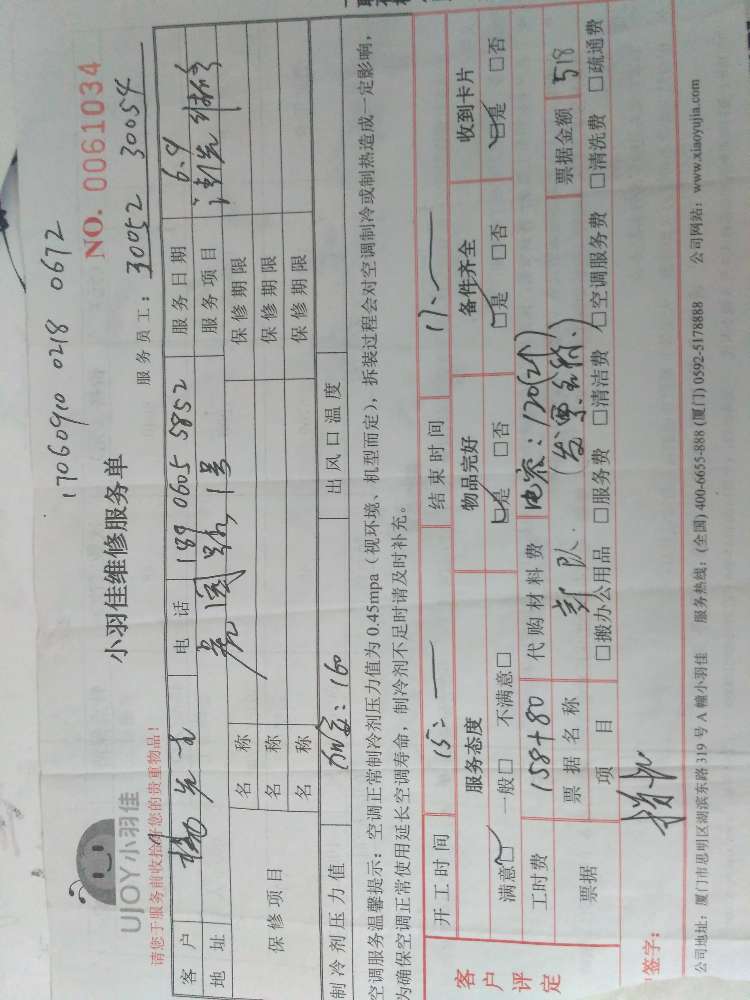 17060910 0218 0672
UJOY小羽佳
小羽佳维修服务单
NO. 0061034
请您于服务前收拾好您的贵重物品!
服务员工: 30052 30054
客户 杨先生 电话 189 0605 5852 服务日期 6.9
地址 1号 服务项目
保修项目 名称 保修期限
名称 保修期限
名称 保修期限
制冷剂压力值 160 出风口温度
空调服务温馨提示: 空调正常制冷剂压力值为 0.45mpa(视环境、机型而定), 拆装过程会对空调制冷或制热造成一定影响,
为确保空调正常使用延长空调寿命, 制冷剂不足时请及时补充。
客户评定
开工时间 15:— 结束时间 17:—
服务态度 物品完好 备件齐全 收到卡片
满意□ 一般□ 不满意□ □是 □否 □是 □否 □是 □否
工时费 158+80 代购材料费 电容:120(2个) 票据金额 518
票据 票据名称
项目 □搬办公用品 □服务费 □清洁费 □空调服务费 □清洗费 □疏通费
签字:
公司地址: 厦门市思明区湖滨东路 319 号 A 幢小羽佳 服务热线: (全国) 400-6655-888 (厦门) 0592-5178888 公司网站: www.xiaoyujia.com